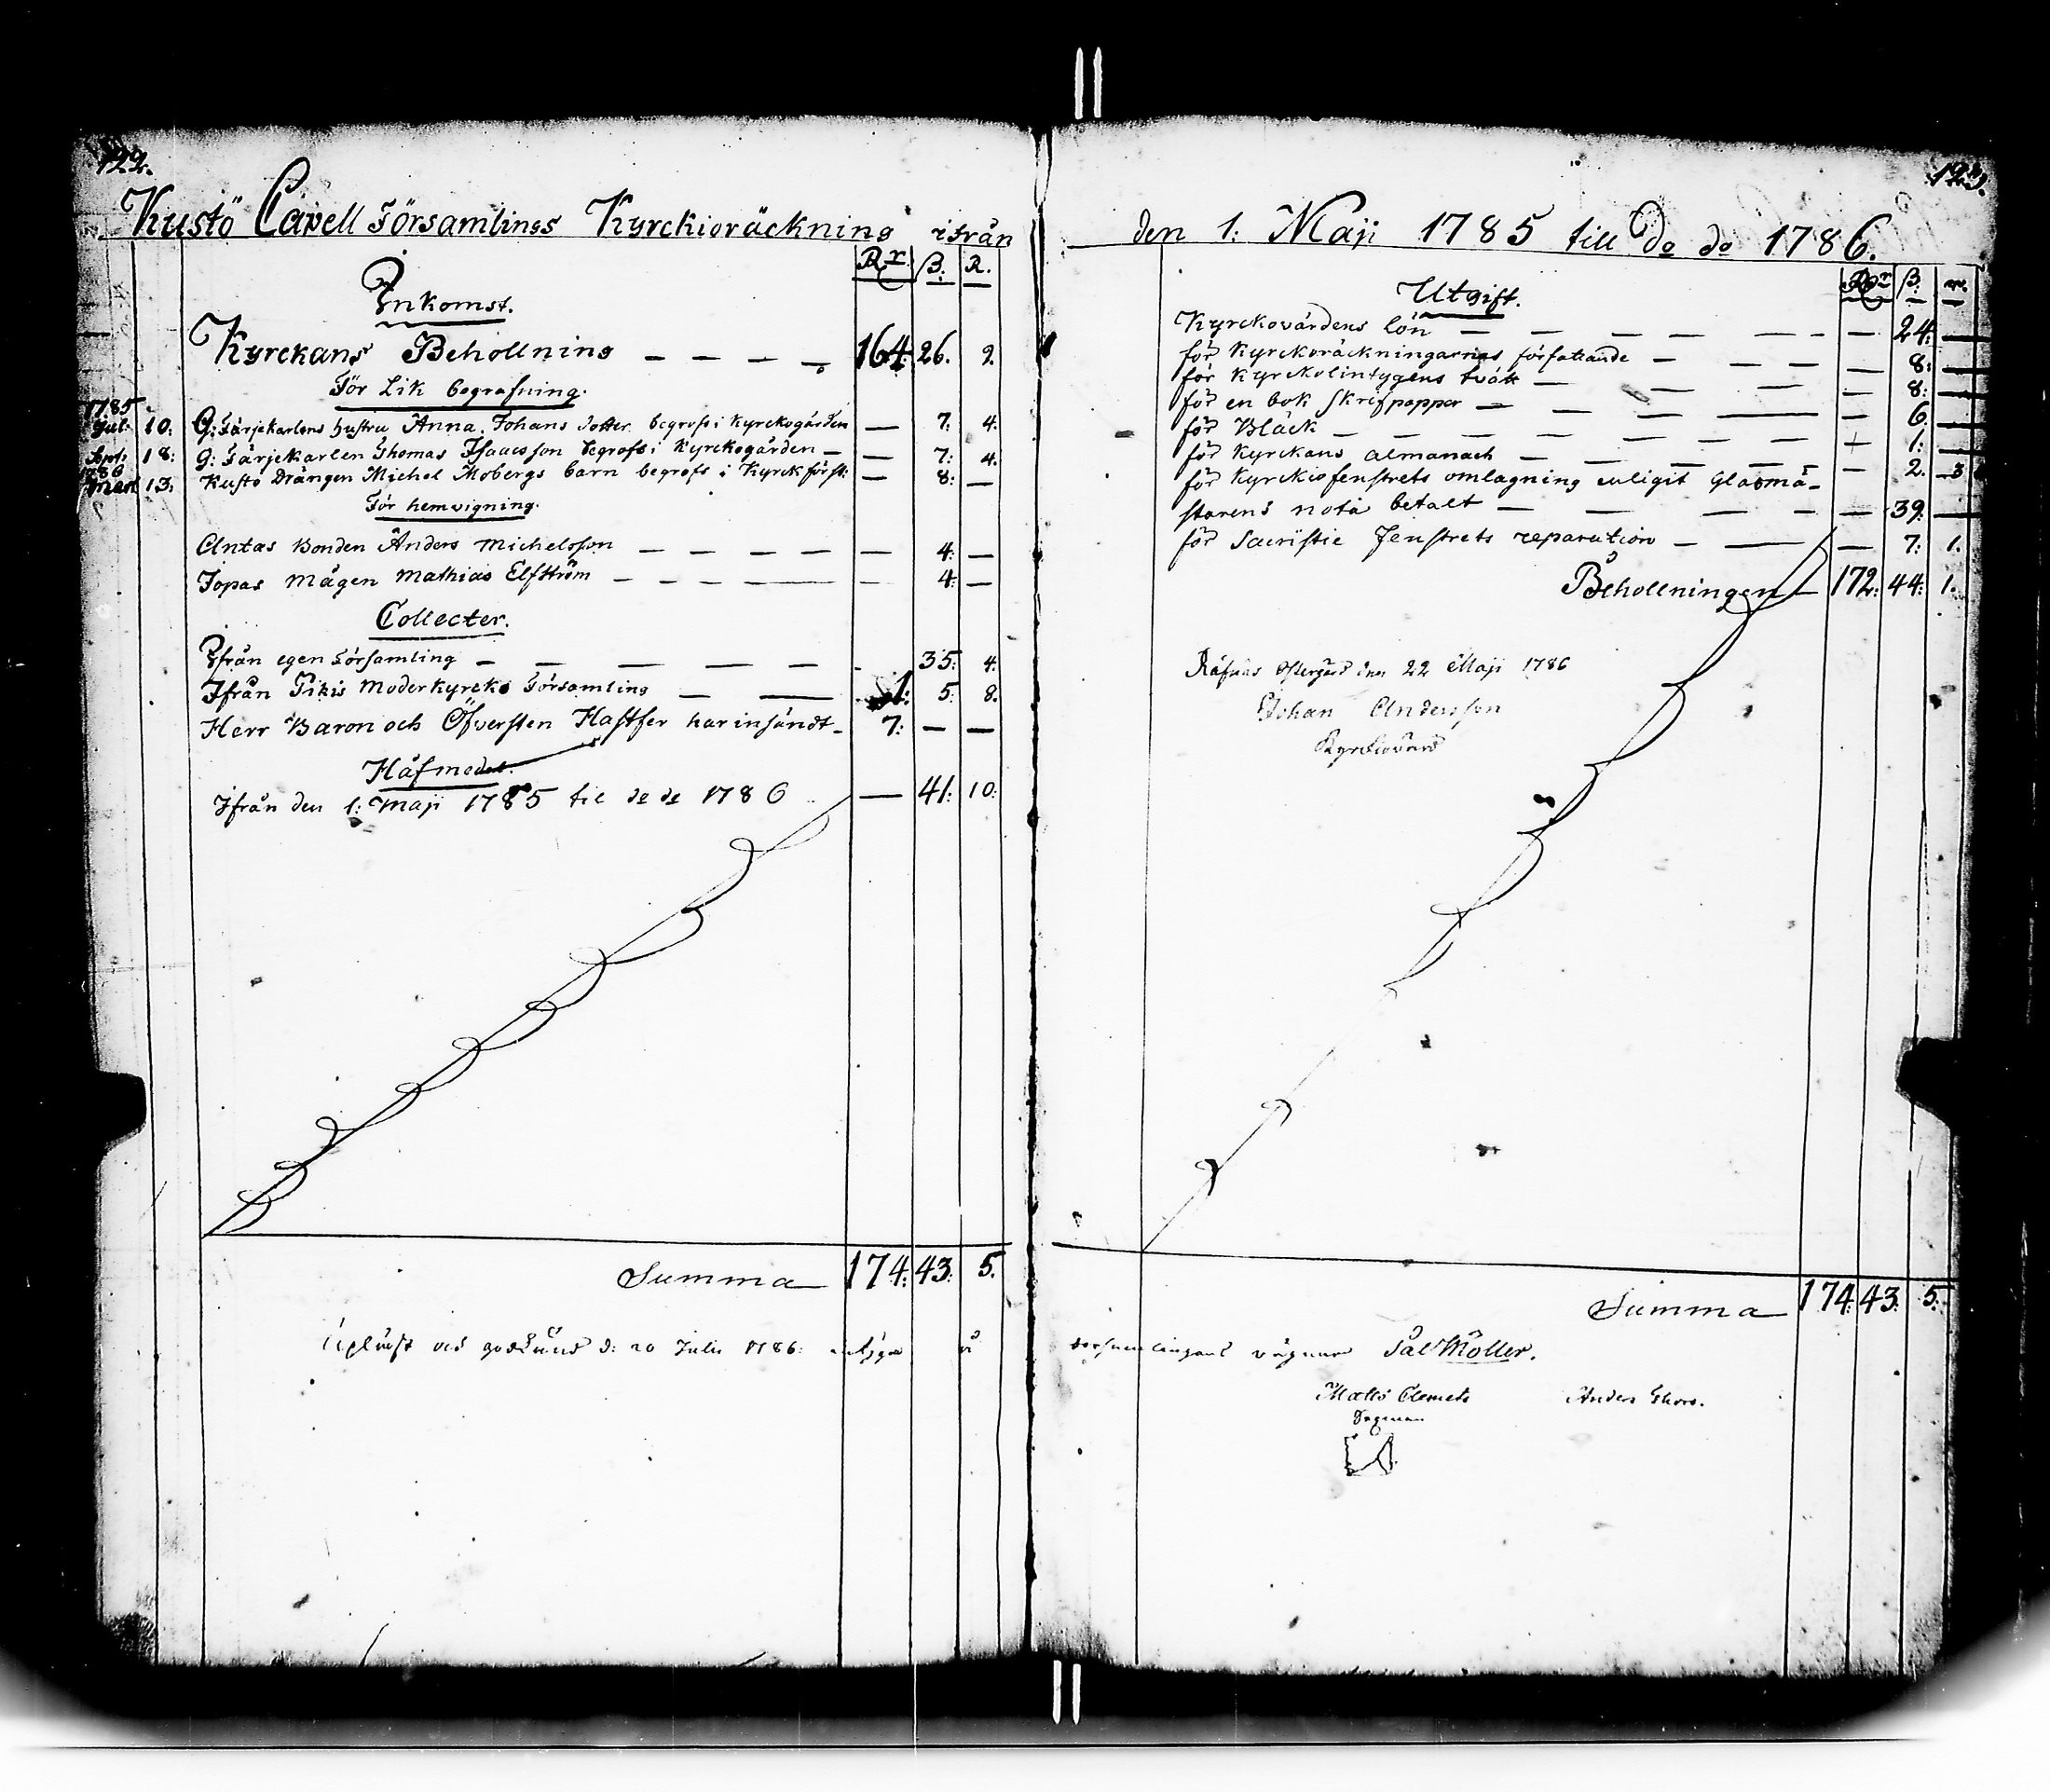 122.
Kustö Capell Församlings Kyrckioräckning ifrån
Rr. ß. R.
Inkomst.
Kyrckans Behollning — — — — 164. 26. 9.
För Lik begrafning.
1785
Jul. 10. G: Färjekarlens hustru Anna Johans dotter begrofs i Kyrckogården — 7. 4.
Sept. 18. G: Färjekarlen Thomas Isaacsson begrofs i Kyrckogården — — 7: 4.
1786
Mart. 13. Kustö Drängen Michel Mobergs barn begrofs i Kyrck först: — 8: —
För hemvigning.
Antas Bonden Anders Michelsson — — — — — 4: —
Jopas mågen Mathias Elfström — — — — 4: —
Collecter.
Ifrån egen församling — — — — — 35: 4.
Ifrån Pikis Moderkyrcko Församling — — 1: 5. 8.
Herr Baron och Öfversten Hastfer har insändt — 7: — —
Håfmedel.
Ifrån den 1: Maji 1785 til do do 1786 — 41: 10:
Summa — 174: 43: 5.
Upläst och godkänd d: 20 Julii 1786: på
123.
den 1: Maji 1785 till Do do 1786.
Rdr ß. r.
Utgift.
Kyrckovärdens lön — — — — — — 24: —
för Kyrckoräckningarnes författande — — 8: —
för Kyrckolintygens tvätt — — — — 8: —
för en bok skrifpapper — — — — — 6. —
för Bläck — — — — — — — 1: —
för Kyrckans almanach — — — — — 2. 3
för Kyrckiofenstrets omlagning enligit Glasmä-
starens nota betalt — — — — — 39: —
för Sacristie fenstrets reparation — — — 7: 1.
Behollningen — 172: 44: 1.
Östergård den 22 Maji 1786
Johan Andersson
Kyrckiovärd
Summa — 174: 43: 5.
församlingens vägnar Sal Möller.
Matts Clemets Anders Thors.